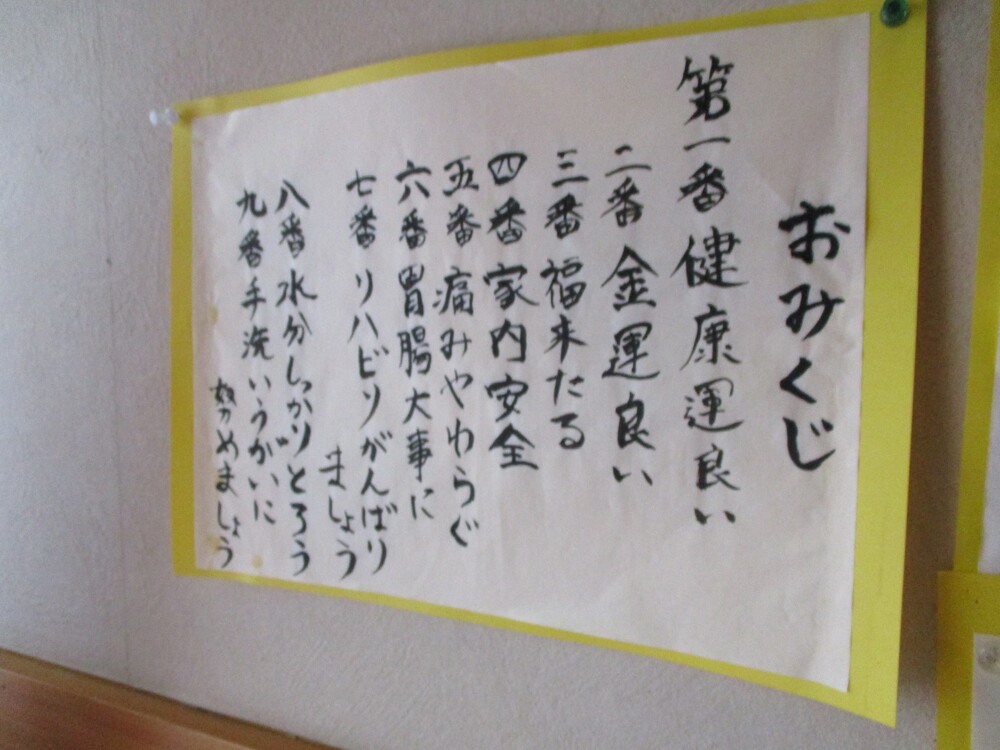 おみくじ
第一番健康運良い
二番 金運良い
三番 福来たる
四番 家内安全
五番 痛みやわらぐ
六番 胃腸大事に
七番 リハビリがんばり
ましょう
八番 水分しっかりとろう
九番 手洗いうがいに
努めましょう